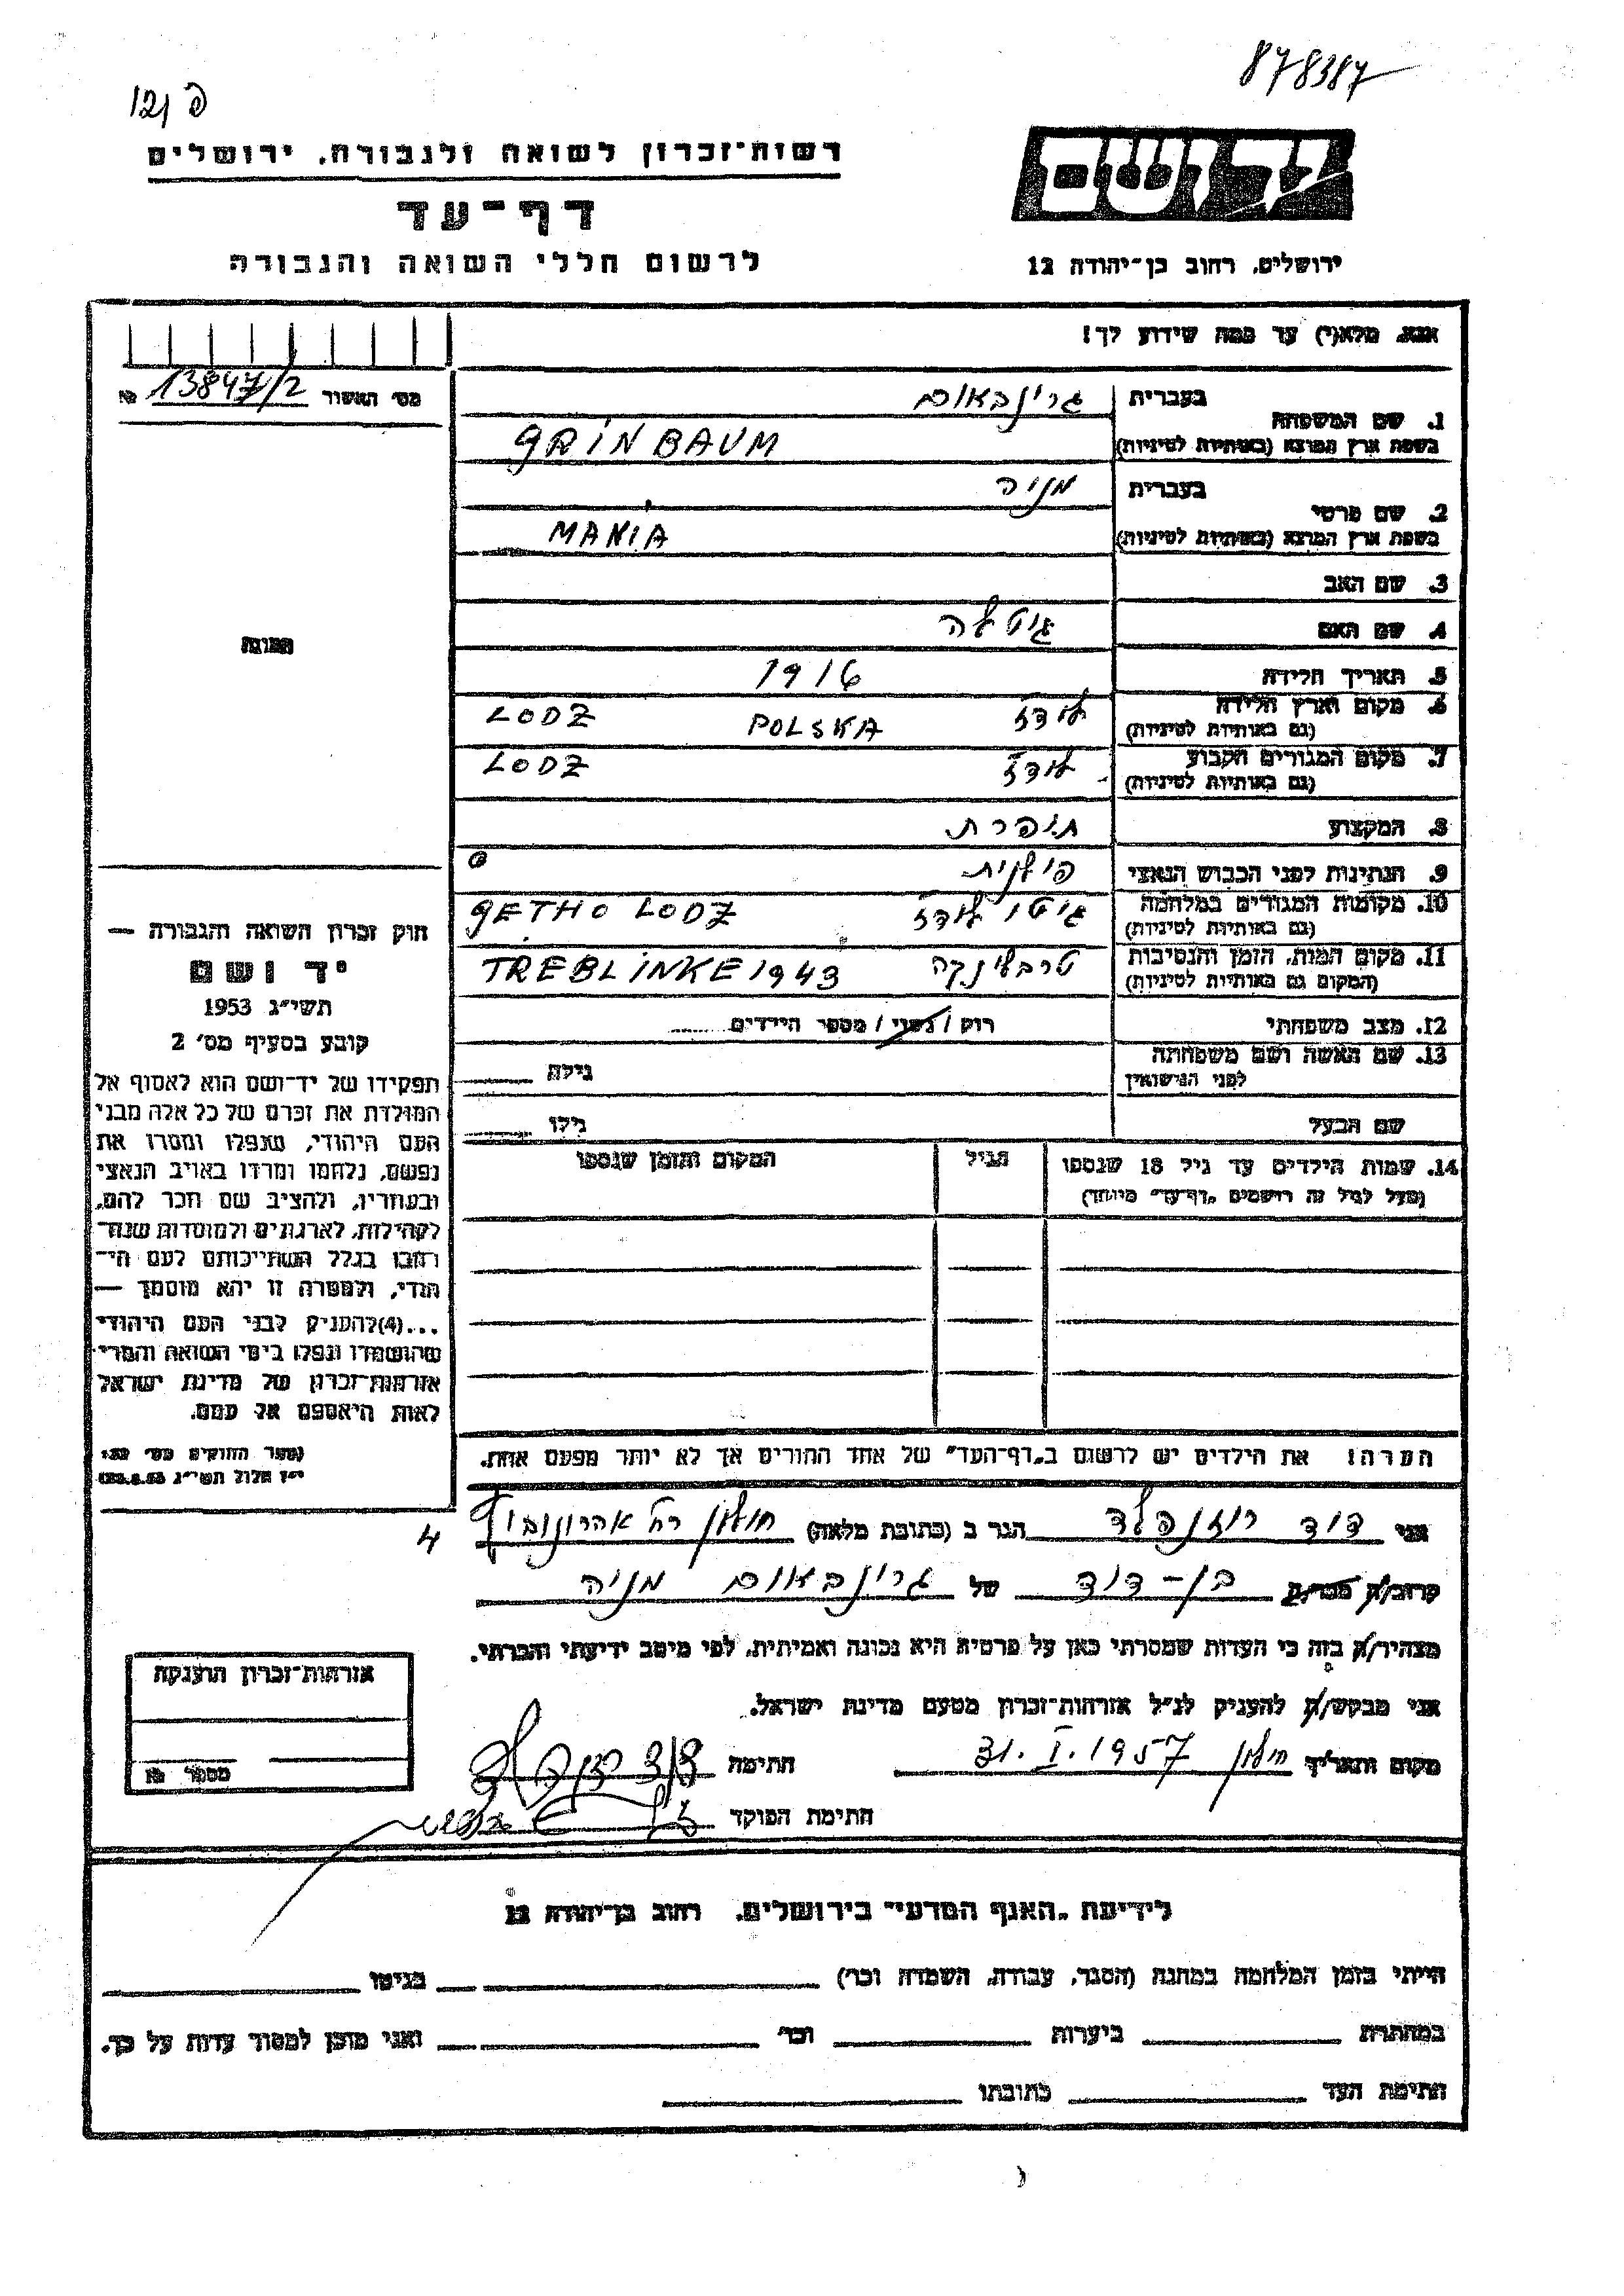 878387
פ 121
יד ושם
ירושלים, רחוב בן־יהודה 12
רשות־זכרון לשואה ולגבורה, ירושלים
דף־עד
לרשום חללי השואה והגבורה
אנא, מלא(י) עד כמה שידוע לך!
מס׳ האשור 13847/2 №
1. שם המשפחה בעברית גרינבאום
בשפת ארץ המוצא (באותיות לטיניות) GRINBAUM
2. שם פרטי בעברית מניה
בשפת ארץ המוצא (באותיות לטיניות) MANIA
3. שם האב
4. שם האם גיטלה
5. תאריך הלידה 1916
6. מקום וארץ הלידה לודז POLSKA LODZ
(גם באותיות לטיניות)
7. מקום המגורים הקבוע לודז LODZ
(גם באותיות לטיניות)
8. המקצוע תופרת
9. הנתינות לפני הכבוש הנאצי פולנית
10. מקומות המגורים במלחמה גיטו לודז GETHO LODZ
(גם באותיות לטיניות)
11. מקום המות, הזמן והנסיבות טרבלינקה TREBLINKE 1943
(המקום גם באותיות לטיניות)
12. מצב משפחתי רוק / נשוי / מספר הילדים
13. שם האשה ושם משפחתה גילה
לפני הנישואין
שם הבעל גילו
14. שמות הילדים עד גיל 18 שנספו הגיל המקום והזמן שנספו
(מעל לגיל זה רושמים „דף־עד״ מיוחד)
הערה! את הילדים יש לרשום ב„דף־העד״ של אחד ההורים אך לא יותר מפעם אחת.
התמונה
חוק זכרון השואה והגבורה —
יד ושם
תשי״ג 1953
קובע בסעיף מס׳ 2
תפקידו של יד־ושם הוא לאסוף אל
המולדת את זכרם של כל אלה מבני
העם היהודי, שנפלו ומסרו את
נפשם, נלחמו ומרדו באויב הנאצי
ובעוזריו, ולהציב שם וזכר להם,
לקהילות, לארגונים ולמוסדות שנח־
רבו בגלל השתייכותם לעם הי־
הודי, ולמטרה זו יהא מוסמך —
...(4)להעניק לבני העם היהודי
שהושמדו ונפלו בימי השואה והמרי
אזרחות־זכרון של מדינת ישראל
לאות היאספם אל עמם.
(ספר החוקים מס׳ 132
י״ז אלול תשי״ג 28.8.53)
אני דוד רוזנפלד הגר ב (כתובת מלאה) חולון רח׳ אהרונוביץ
4
קרוב/ה מכר/ה בן-דוד של גרינבאום מניה
מצהיר/ה בזה כי העדות שמסרתי כאן על פרטיה היא נכונה ואמיתית, לפי מיטב ידיעתי והכרתי.
אני מבקש/ת להעניק לנ״ל אזרחות־זכרון מטעם מדינת ישראל.
מקום ותאריך חולון 31.I.1957 חתימה דוד רוזנפלד
חתימת הפוקד
אזרחות־זכרון הוענקה
מספר №
לידיעת „האגף המדעי״ בירושלים, רחוב בן־יהודה 12
הייתי בזמן המלחמה במחנה (הסגר, עבודה, השמדה וכו׳) בגיטו
במחתרת ביערות וכו׳ ואני מוכן למסור עדות על כך.
חתימת העד כתובתו